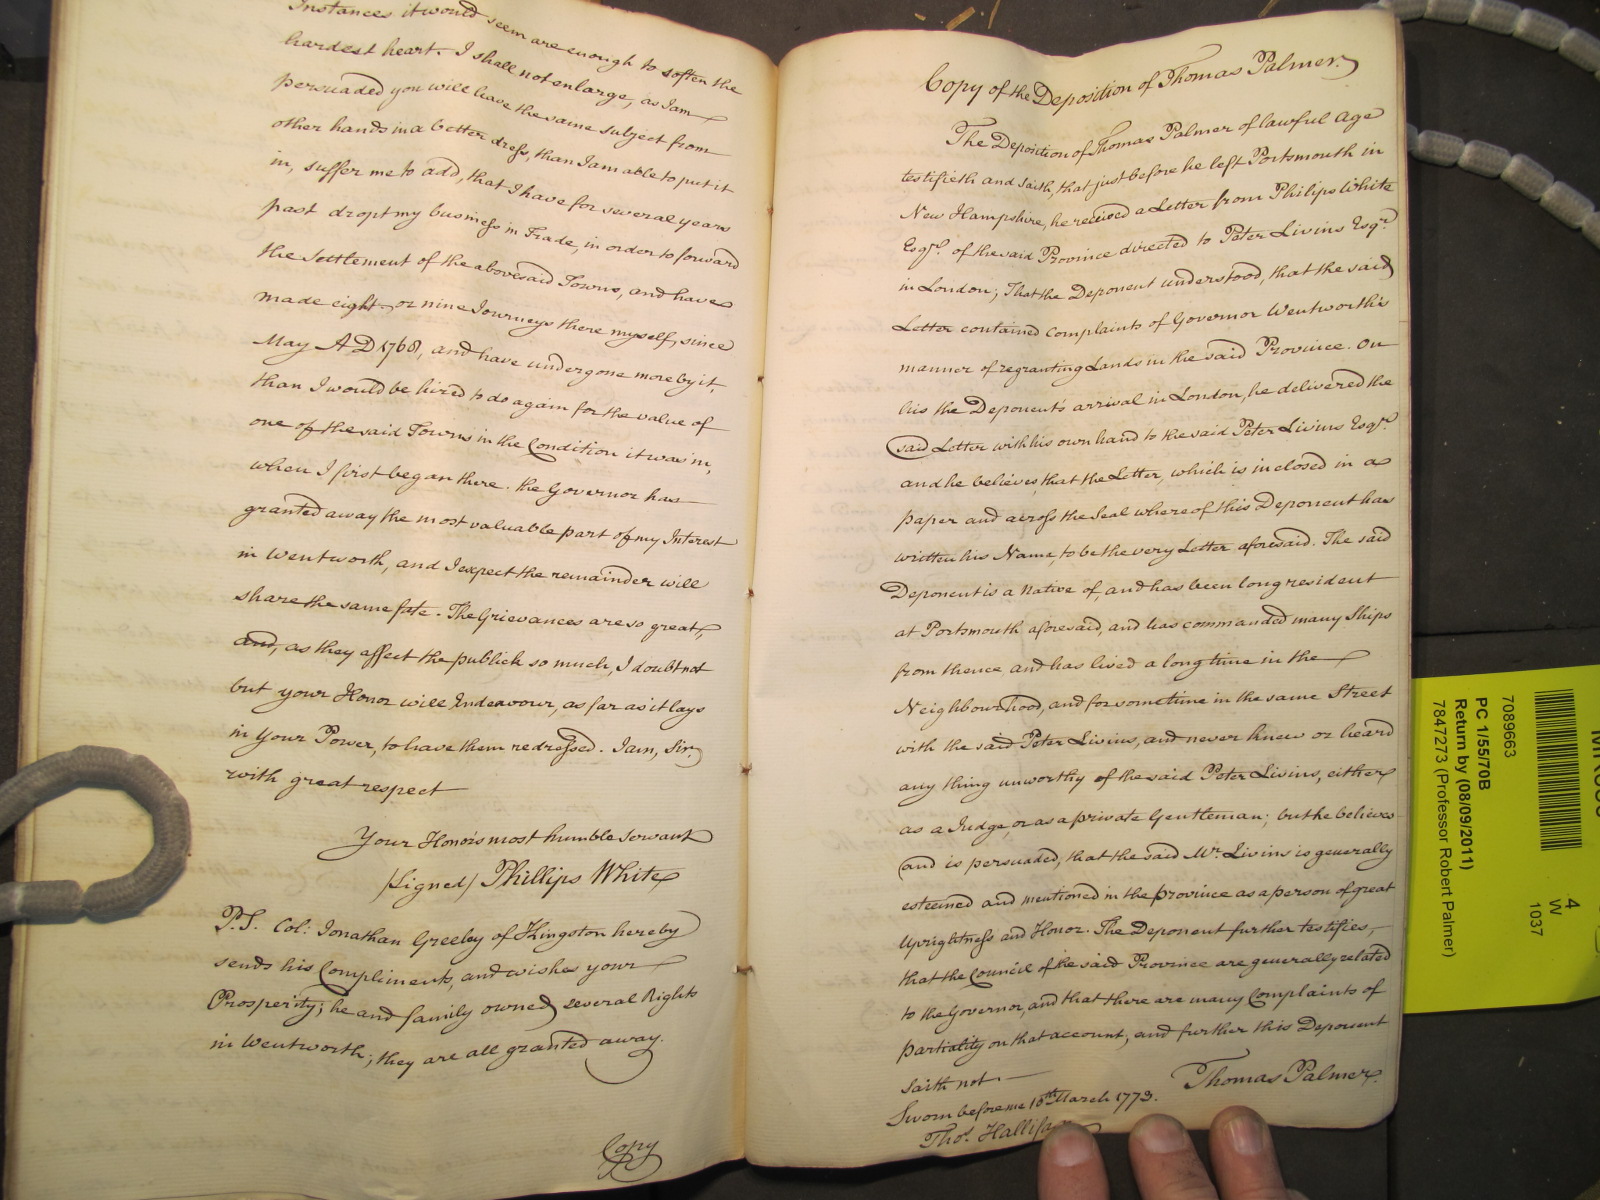 Instances it would seem are enough to soften the
hardest heart. I shall not enlarge, as I am
persuaded you will have the same subject from
other hands in a better dress, than I am able to put it
in, suffer me to add, that I have for several years
past dropt my business in Trade, in order to forward
the Settlement of the abovesaid Towns, and have
made eight or nine Journeys there myself, since
May AD 1768, and have undergone more by it,
than I would be hired to do again for the value of
one of the said Towns in the Condition it was in,
when I first began there. the Governor has
granted away the most valuable part of my Interest
in Wentworth, and I expect the remainder will
share the same fate. The Grievances are so great,
and, as they affect the publick so much, I doubt not
but your Honor will Endeavour, as far as it lays
in your Power, to have them redressed. I am, Sir,
with great respect
Your Honors most humble Servant
/Signed/ Phillips White
P.S. Col: Jonathan Greeley of Kingston hereby
sends his Compliments, and wishes your
Prosperity; he and family owned several Rights
in Wentworth, they are all granted away.
Copy
Copy of the Deposition of Thomas Palmer.
The Deposition of Thomas Palmer of lawful Age
testifieth and saith, that just before he left Portsmouth in
New Hampshire, he received a Letter from Philips White
Esqr. of the said Province directed to Peter Livius Esqr.
in London; That the Deponent understood, that the said
Letter contained complaints of Governor Wentworth's
manner of regranting Lands in the said Province. On
his the Deponent's arrival in London, he delivered the
said Letter with his own hand to the said Peter Livius Esqr.
and he believes, that the Letter, which is inclosed in a
paper and across the Seal whereof this Deponent has
written his Name, to be the very Letter aforesaid. The said
Deponent is a Native of, and has been long resident
at Portsmouth aforesaid, and has commanded many Ships
from thence and has lived a long time in the
Neighbourhood, and for sometime in the same Street
with the said Peter Livius, and never knew or heard
any thing unworthy of the said Peter Livius, either
as a Judge, or as a private Gentleman; but he believes
and is persuaded, that the said Mr. Livius is generally
esteemed and mentioned in the Province as a person of great
Uprightness and Honor. The Deponent further testifies,
that the Council of the said Province are generally related
to the Governor, and that there are many Complaints of
partiality on that account, and further this Deponent
saith not.
Thomas Palmer.
Sworn before me 10th March 1773.
Thos. Hallifax
7089663
PC 1/55/70B
Return by (08/09/2011)
7847273 (Professor Robert Palmer)
4
W
1037